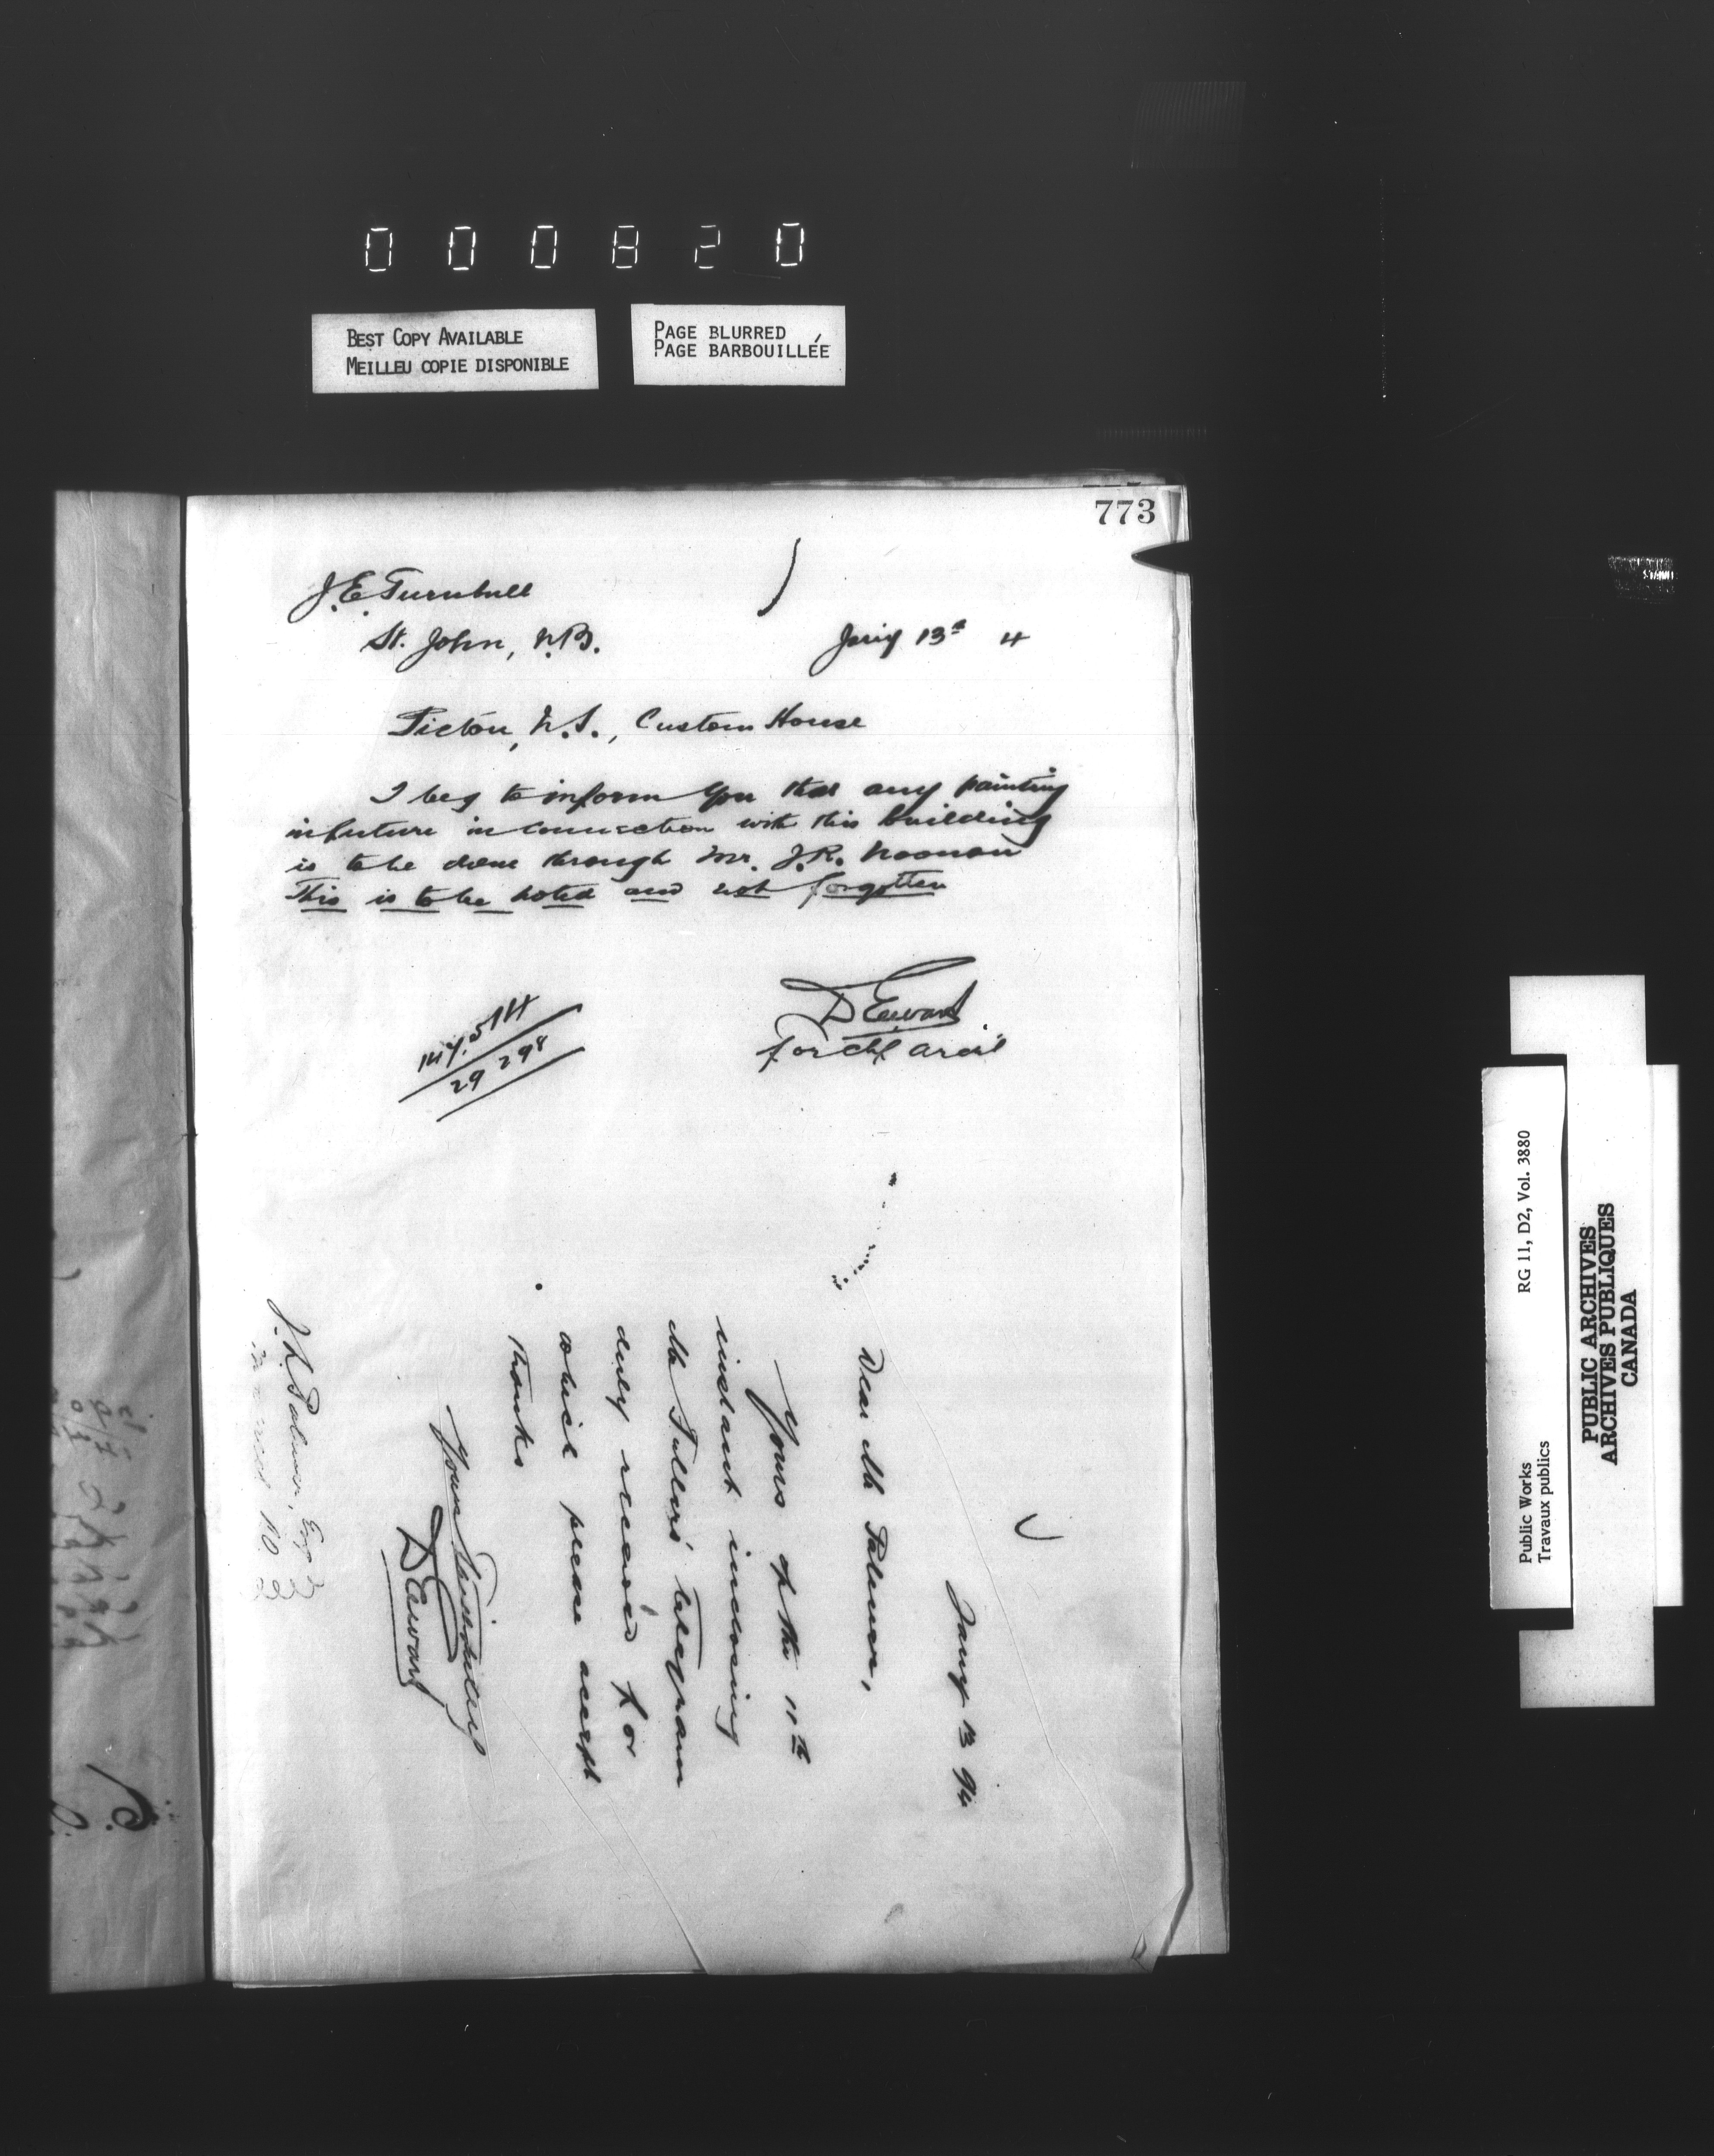 000820
BEST COPY AVAILABLE
MEILLEU COPIE DISPONIBLE
PAGE BLURRED
PAGE BARBOUILLÉE
773
J.E. Turnbull
St. John, N.B.
Jany 13th 4
Pictou, N.S., Custom House
I beg to inform you that any painting
in future in connection with this building
is to be done through Mr. J.R. Noonan
This is to be noted and not forgotten
D Ewart
for Chf Arct
147.514
29 298
Jany 13 94
Dear Mr Palmer,
Yours of the 11th
instant inclosing
Mr Fuller's telegram
duly received for
which please accept
thanks
Yours truly
D Ewart
J. L. Palmer, Esq
RG 11, D2, Vol. 3880
Public Works
Travaux publics
PUBLIC ARCHIVES
ARCHIVES PUBLIQUES
CANADA